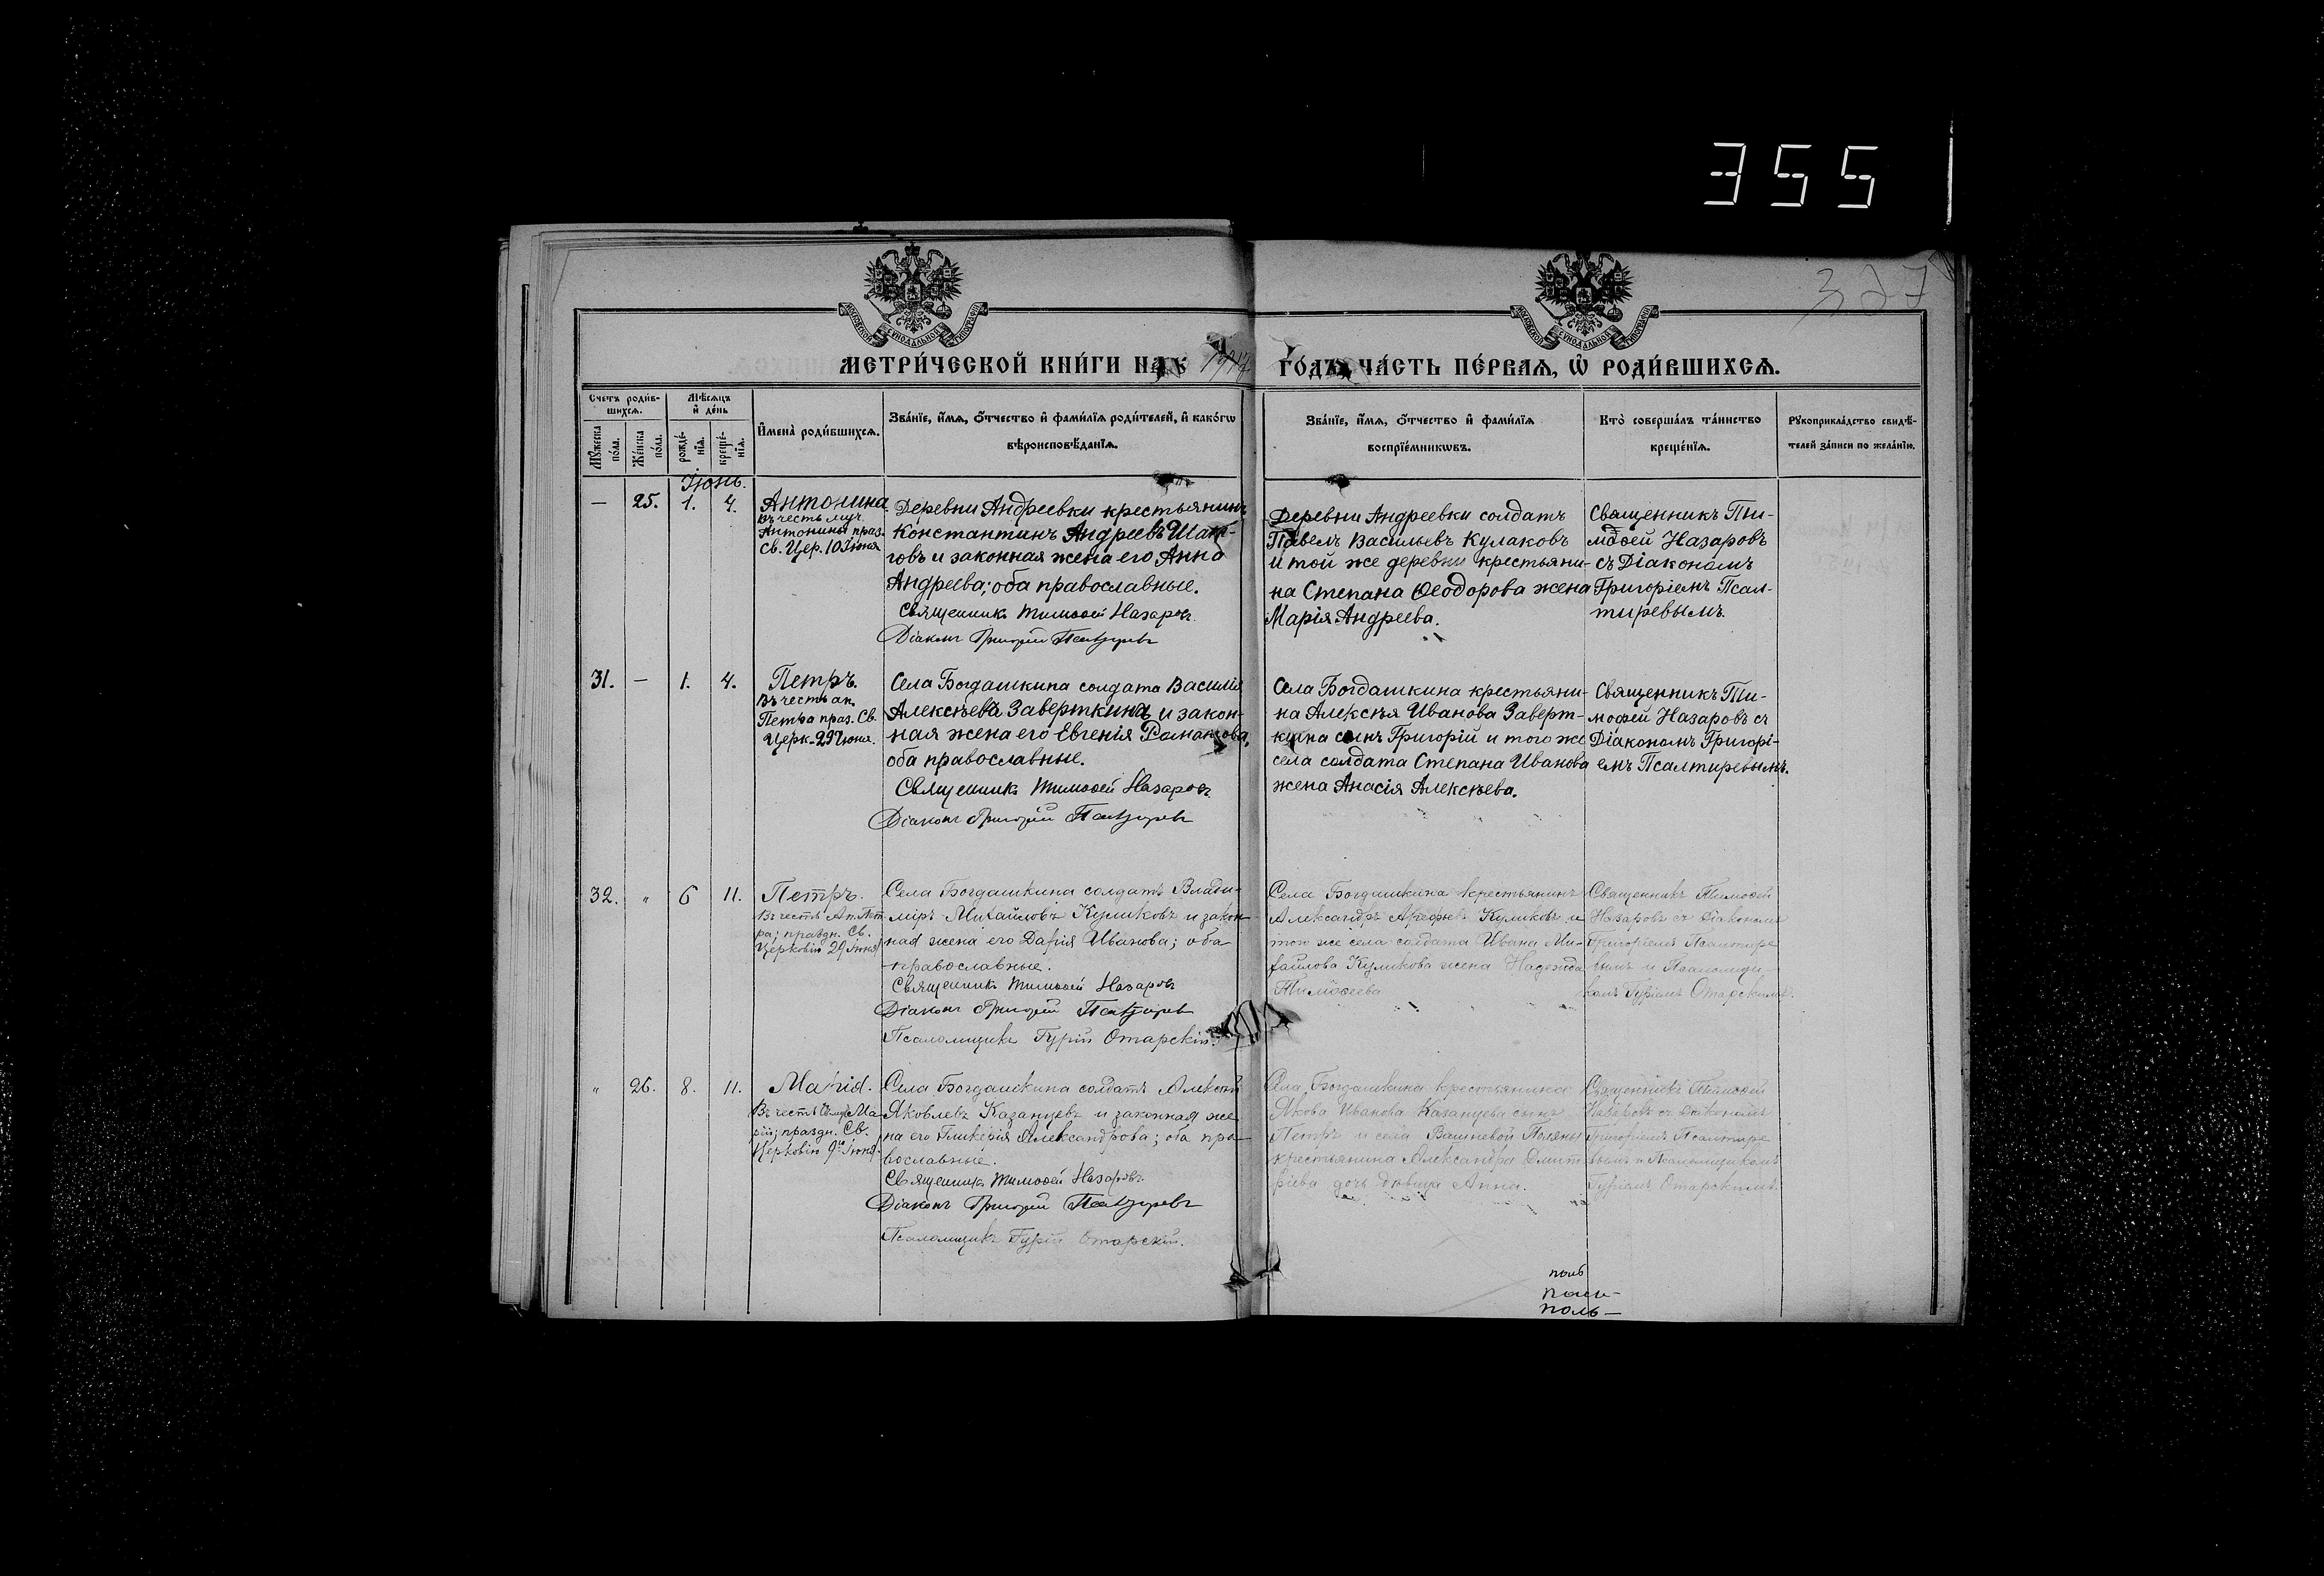 355
327
МОСКОВСКОЙ СѴНОДАЛЬНОЙ ТИПОГРАФІИ
МОСКОВСКОЙ СѴНОДАЛЬНОЙ ТИПОГРАФІИ
МЕТРИ́ЧЕСКОЙ КНИ́ГИ НА 1917 ГО́ДЪ, ЧА́СТЬ ПЕ́РВАѦ, Ѽ РОДИ́ВШИХСѦ.
Счетъ роди́в-
шихсѧ.
Мꙋ́жеска
по́ла.
Же́нска
по́ла.
Мѣ́сѧцъ
и҆ де́нь
рожде́-
нїѧ.
креще́-
нїѧ.
И҆мена̀ роди́вшихсѧ.
Зва́нїе, и҆́мѧ, ѻ҆́тчество и҆ фами́лїѧ роди́телей, и҆ како́гѡ
вѣроисповѣ́данїѧ.
Зва́нїе, и҆́мѧ, ѻ҆́тчество и҆ фами́лїѧ
воспрїе́мникѡвъ.
Кто̀ соверша́лъ та́инство
креще́нїѧ.
Рꙋкоприкла́дство свидѣ́-
телей за́писи по жела́нїю.
Іюнь.
— 25. 1. 4.
Антонина.
Въ честь муч.
Антонины праз.
Св. Цер. 10 Іюня
Деревни Андреевки крестьянинъ
Константинъ Андреевъ
говъ и законная жена его Анна
Андреева; оба православные.
Священникъ Тимоѳей Назаровъ
Діаконъ Григорій Псалтыревъ
Деревни Андреевки солдатъ
Павелъ Васильевъ Кулаковъ
и той же деревни крестьяни-
на Степана Ѳеодорова жена
Марія Андреева.
Священникъ Ти-
моѳей Назаровъ
съ Діакономъ
Григоріемъ Псал-
тиревымъ.
31. — 1. 4.
Петръ.
Въ честь ап.
Петра праз. Св.
Церк. 29 Іюня.
Села Богдашкина солдата Василія
Алексѣева Заверткина и закон-
ная жена его Евгенія Романова,
оба православные.
Священникъ Тимоѳей Назаровъ
Діаконъ Григорій Псалтыревъ
Села Богдашкина крестьяни-
на Алексѣя Иванова Заверт-
кина сынъ Григорій и того же
села солдата Степана Иванова
жена Анасія Алексѣева.
Священникъ Ти-
моѳей Назаровъ съ
Діакономъ Григорі-
емъ Псалтиревымъ.
32. " 6 11.
Петръ.
Въ честь Ап. Пет
ра; праздн. Св.
Церковію 29 Іюня
Села Богдашкина солдатъ Влади-
міръ Михайловъ Куликовъ и закон-
ная жена его Дарія Иванова; оба
православные.
Священникъ Тимоѳей Назаровъ
Діаконъ Григорій Псалтыревъ
Псаломщикъ Гурій Отарскій.
Села Богдашкина крестьянинъ
Александръ Арефьевъ Куликовъ и
того же села солдата Ивана Ми-
хайлова Куликова жена Надежда
Тимоѳеева
Священникъ Тимоѳей
Назаровъ съ Діакономъ
Григоріемъ Псалтире
вымъ и Псаломщи-
комъ Гуріемъ Отарскимъ.
" 26. 8. 11.
Марія.
Въ честь Ма
ріи; праздн. Св.
Церковію 9го Іюня.
Села Богдашкина солдатъ Алексѣй
Яковлевъ Казанцевъ и законная же
на его Гликерія Александрова; оба пра-
вославные.
Священникъ Тимоѳей Назаровъ
Діаконъ Григорій Псалтыревъ
Псаломщикъ Гурій Отарскій.
Села Богдашкина крестьянина
Якова Иванова Казанцева сынъ
Петръ и села Вашневой Поляны
крестьянина Александра Дмит
ріева дочь дѣвица Анна.
Священникъ Тимоѳей
Назаровъ съ Діакономъ
Григоріемъ Псалтире
вымъ и Псаломщикомъ
Гуріемъ Отарскимъ.
поль —